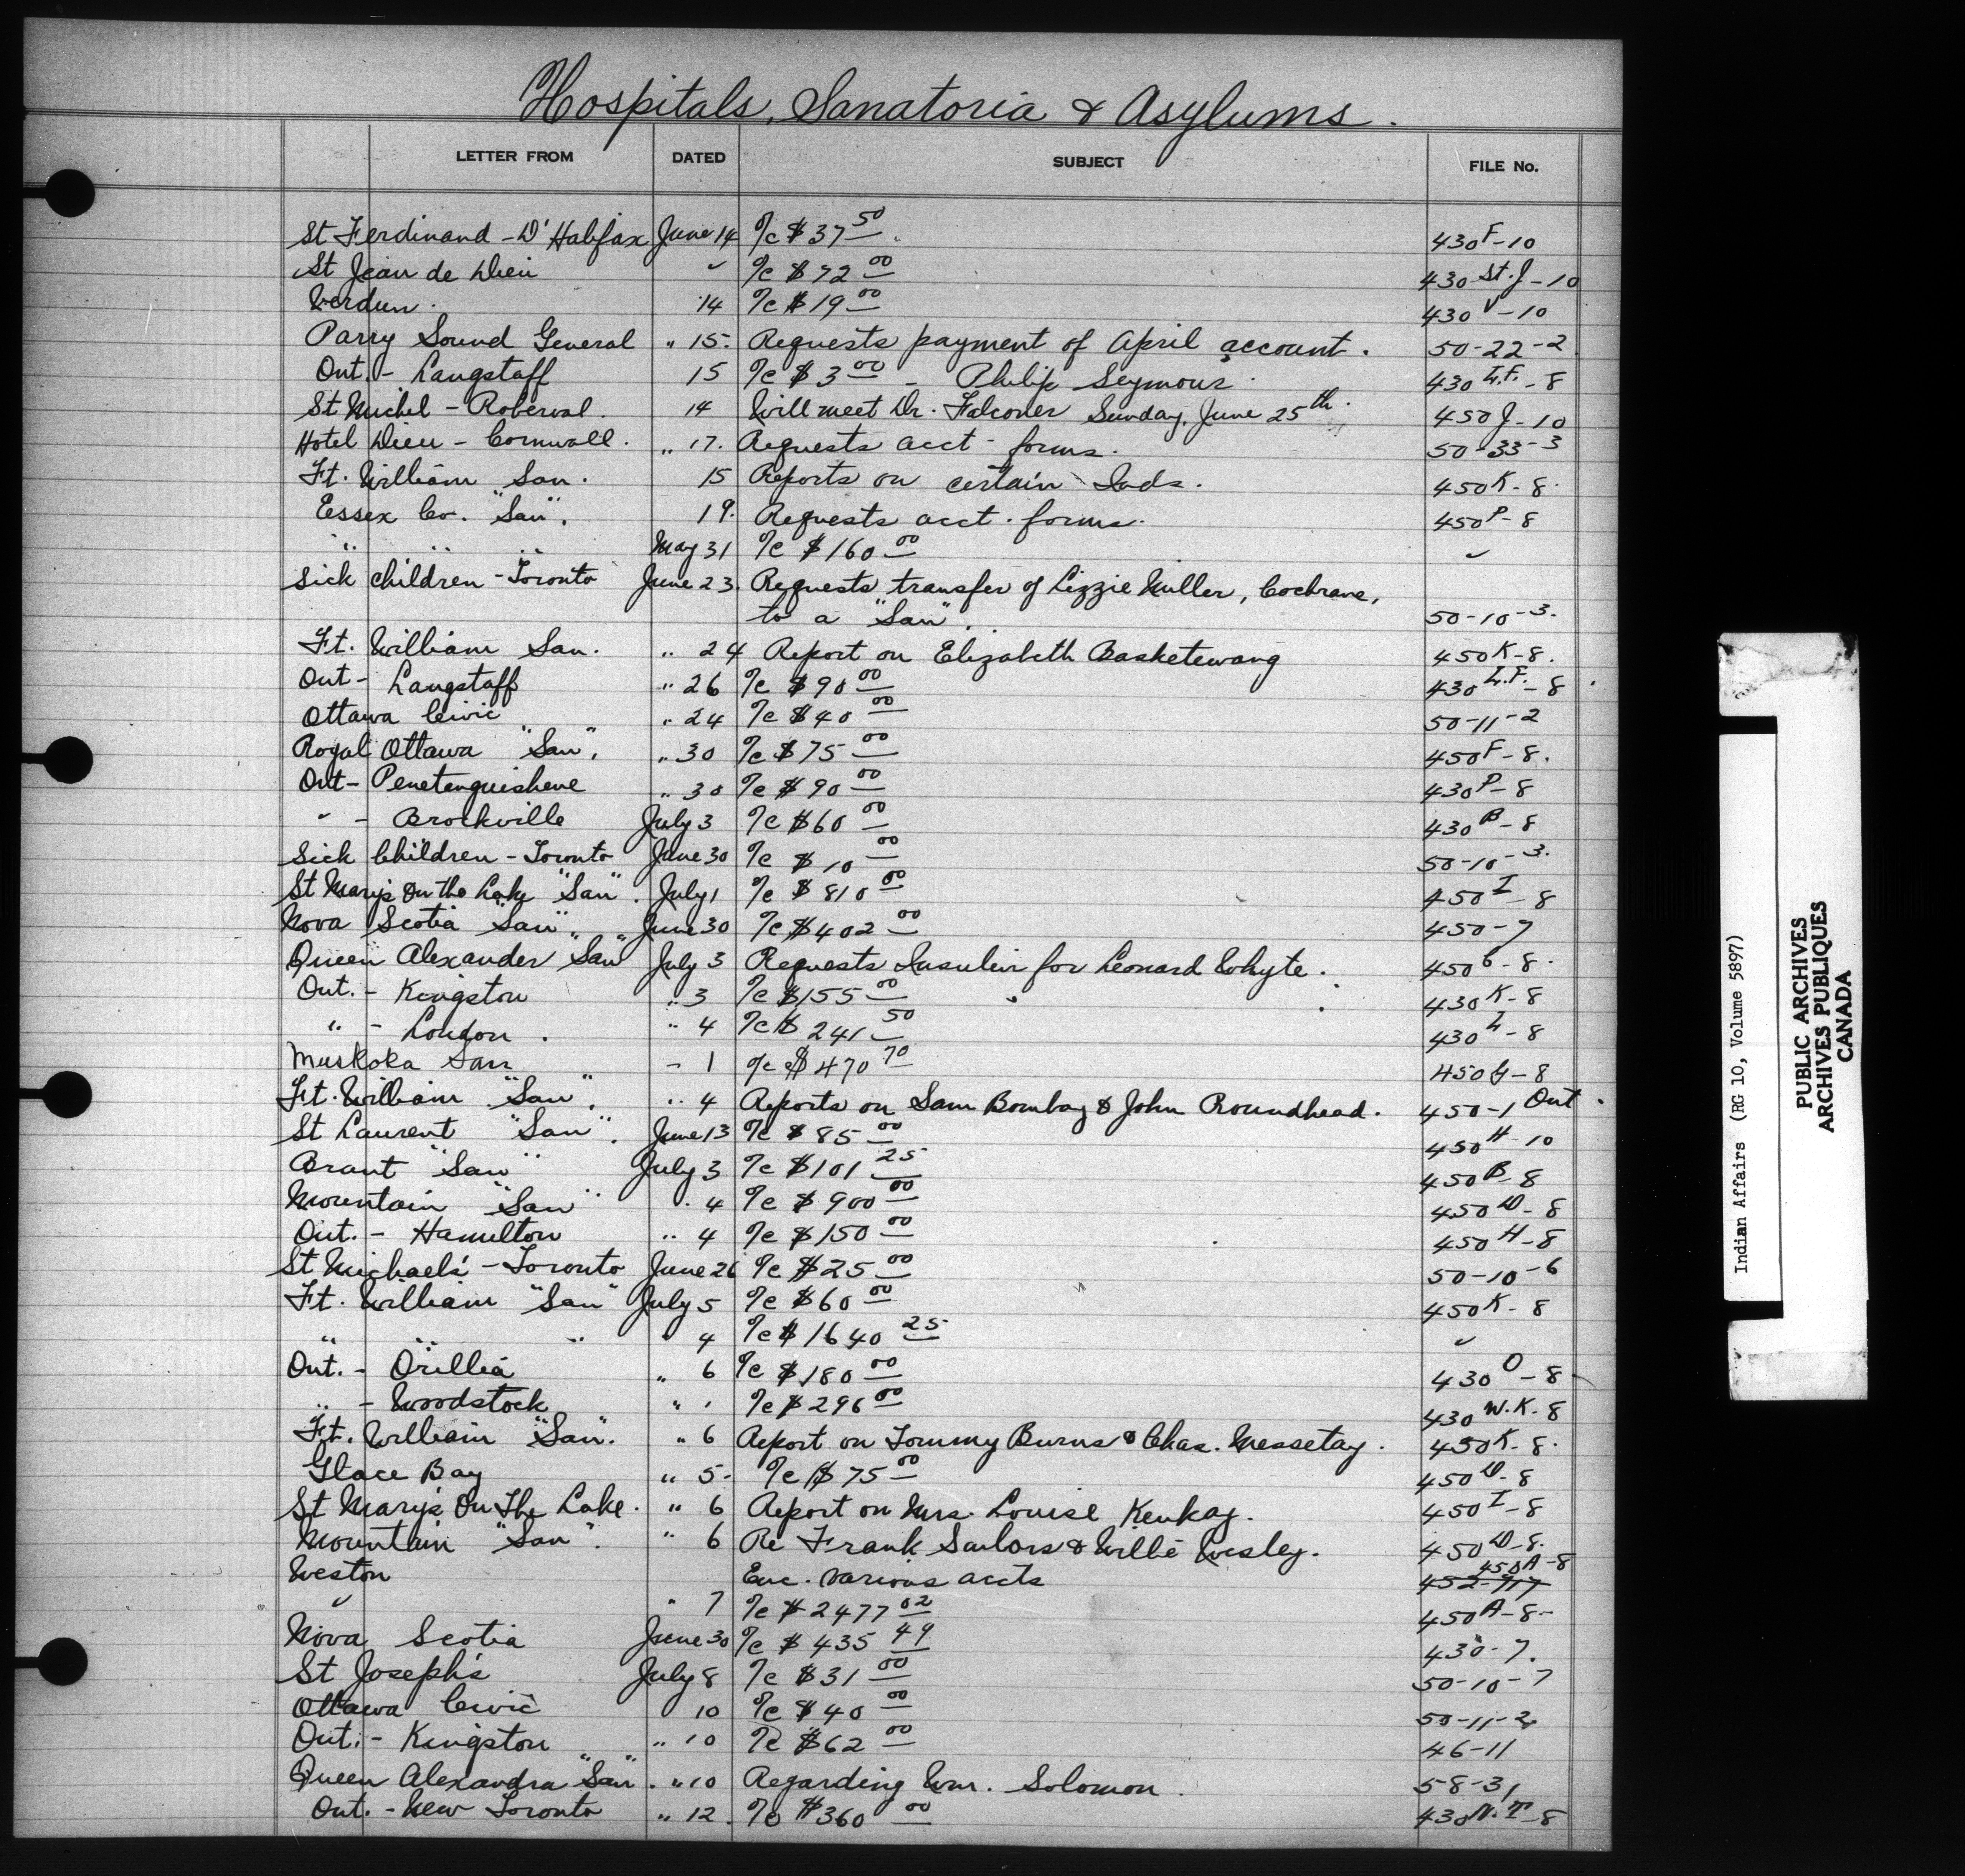 Hospitals, Sanatoria & Asylums.
LETTER FROM DATED SUBJECT FILE No.
St Ferdinand - D'Halifax June 14 %c $37 50 430 F-10
St Jean de Dieu " %c $72 00 430 St. J-10
Verdun. 14 %c $19 00 430 V-10
Parry Sound General " 15. Requests payment of April account. 50-22-2
Ont. - Langstaff 15 %c $3 00 - Philip Seymour. 430 L.F.-8
St Michel - Roberval. 14 Will meet Dr. Falconer Sunday, June 25th. 450 J-10
Hotel Dieu - Cornwall. " 17. Requests acct - forms. 50-33-3
Ft. William San. 15 Reports on certain Inds. 450 K-8.
Essex Co. "San". 19. Requests acct. forms. 450 P-8
" " " May 31 %c $160 00 "
Sick Children - Toronto June 23. Requests transfer of Lizzie Miller, Cochrane,
to a "San". 50-10-3.
Ft. William San. " 24 Report on Elizabeth Basketewang 450 K-8.
Ont - Langstaff " 26 %c $90 00 430 L.F.-8
Ottawa Civic " 24 %c $40 00 50-11-2
Royal Ottawa "San". " 30 %c $75 00 450 F-8.
Ont - Penetanguishene " 30 %c $90 00 430 P-8
" - Brockville July 3 %c $60 00 430 B-8
Sick Children - Toronto June 30 %c $10 00 50-10-3.
St Mary's On the Lake "San". July 1 %c $810 00 450 I-8
Nova Scotia "San". June 30 %c $402 00 450-7
Queen Alexander "San" July 3 Requests Insulin for Leonard Whyte. 450 G-8.
Ont. - Kingston " 3 %c $155 00 430 K-8
" - London. " 4 %c $241 50 430 L-8
Muskoka San - 1 %c $470 70 450 G-8
Ft. William "San". " 4 Reports on Sam Bombay & John Roundhead. 450-1 Ont.
St Laurent "San". June 13 %c $85 00 450 H-10
Brant "San" July 3 %c $101 25 450 B-8
Mountain "San" " 4 %c $900 00 450 D-8
Ont. - Hamilton " 4 %c $150 00 450 H-8
St Michael's - Toronto June 26 %c $25 00 50-10-6
Ft. William "San" July 5 %c $60 00 450 K-8
" " " " 4 %c $1640 25 "
Ont. - Orillia " 6 %c $180 00 430 O-8
" - Woodstock " " %c $296 00 430 W.K-8
Ft. William "San". " 6 Report on Tommy Burns & Chas. Messetay. 450 K-8.
Glace Bay " 5. %c $75 00 450 D-8
St Mary's On The Lake. " 6 Report on Mrs. Louise Kenkay. 450 I-8
Mountain "San". " 6 Re Frank Sailors & Willie Wesley. 450 D-8.
Weston Enc. various accts 452-7 450 A-8
" " 7 %c $2477 02 450 A-8-
Nova Scotia June 30 %c $435 49 430-7.
St Joseph's July 8 %c $31 00 50-10-7
Ottawa Civic 10 %c $40 00 50-11-2.
Ont. - Kingston " 10 %c $62 00 46-11
Queen Alexandra "San". " 10 Regarding Wm. Solomon. 58-31
Ont. - New Toronto " 12. %c $360 00 430 N.T-8
Indian Affairs (RG 10, Volume 5897)
PUBLIC ARCHIVES
ARCHIVES PUBLIQUES
CANADA